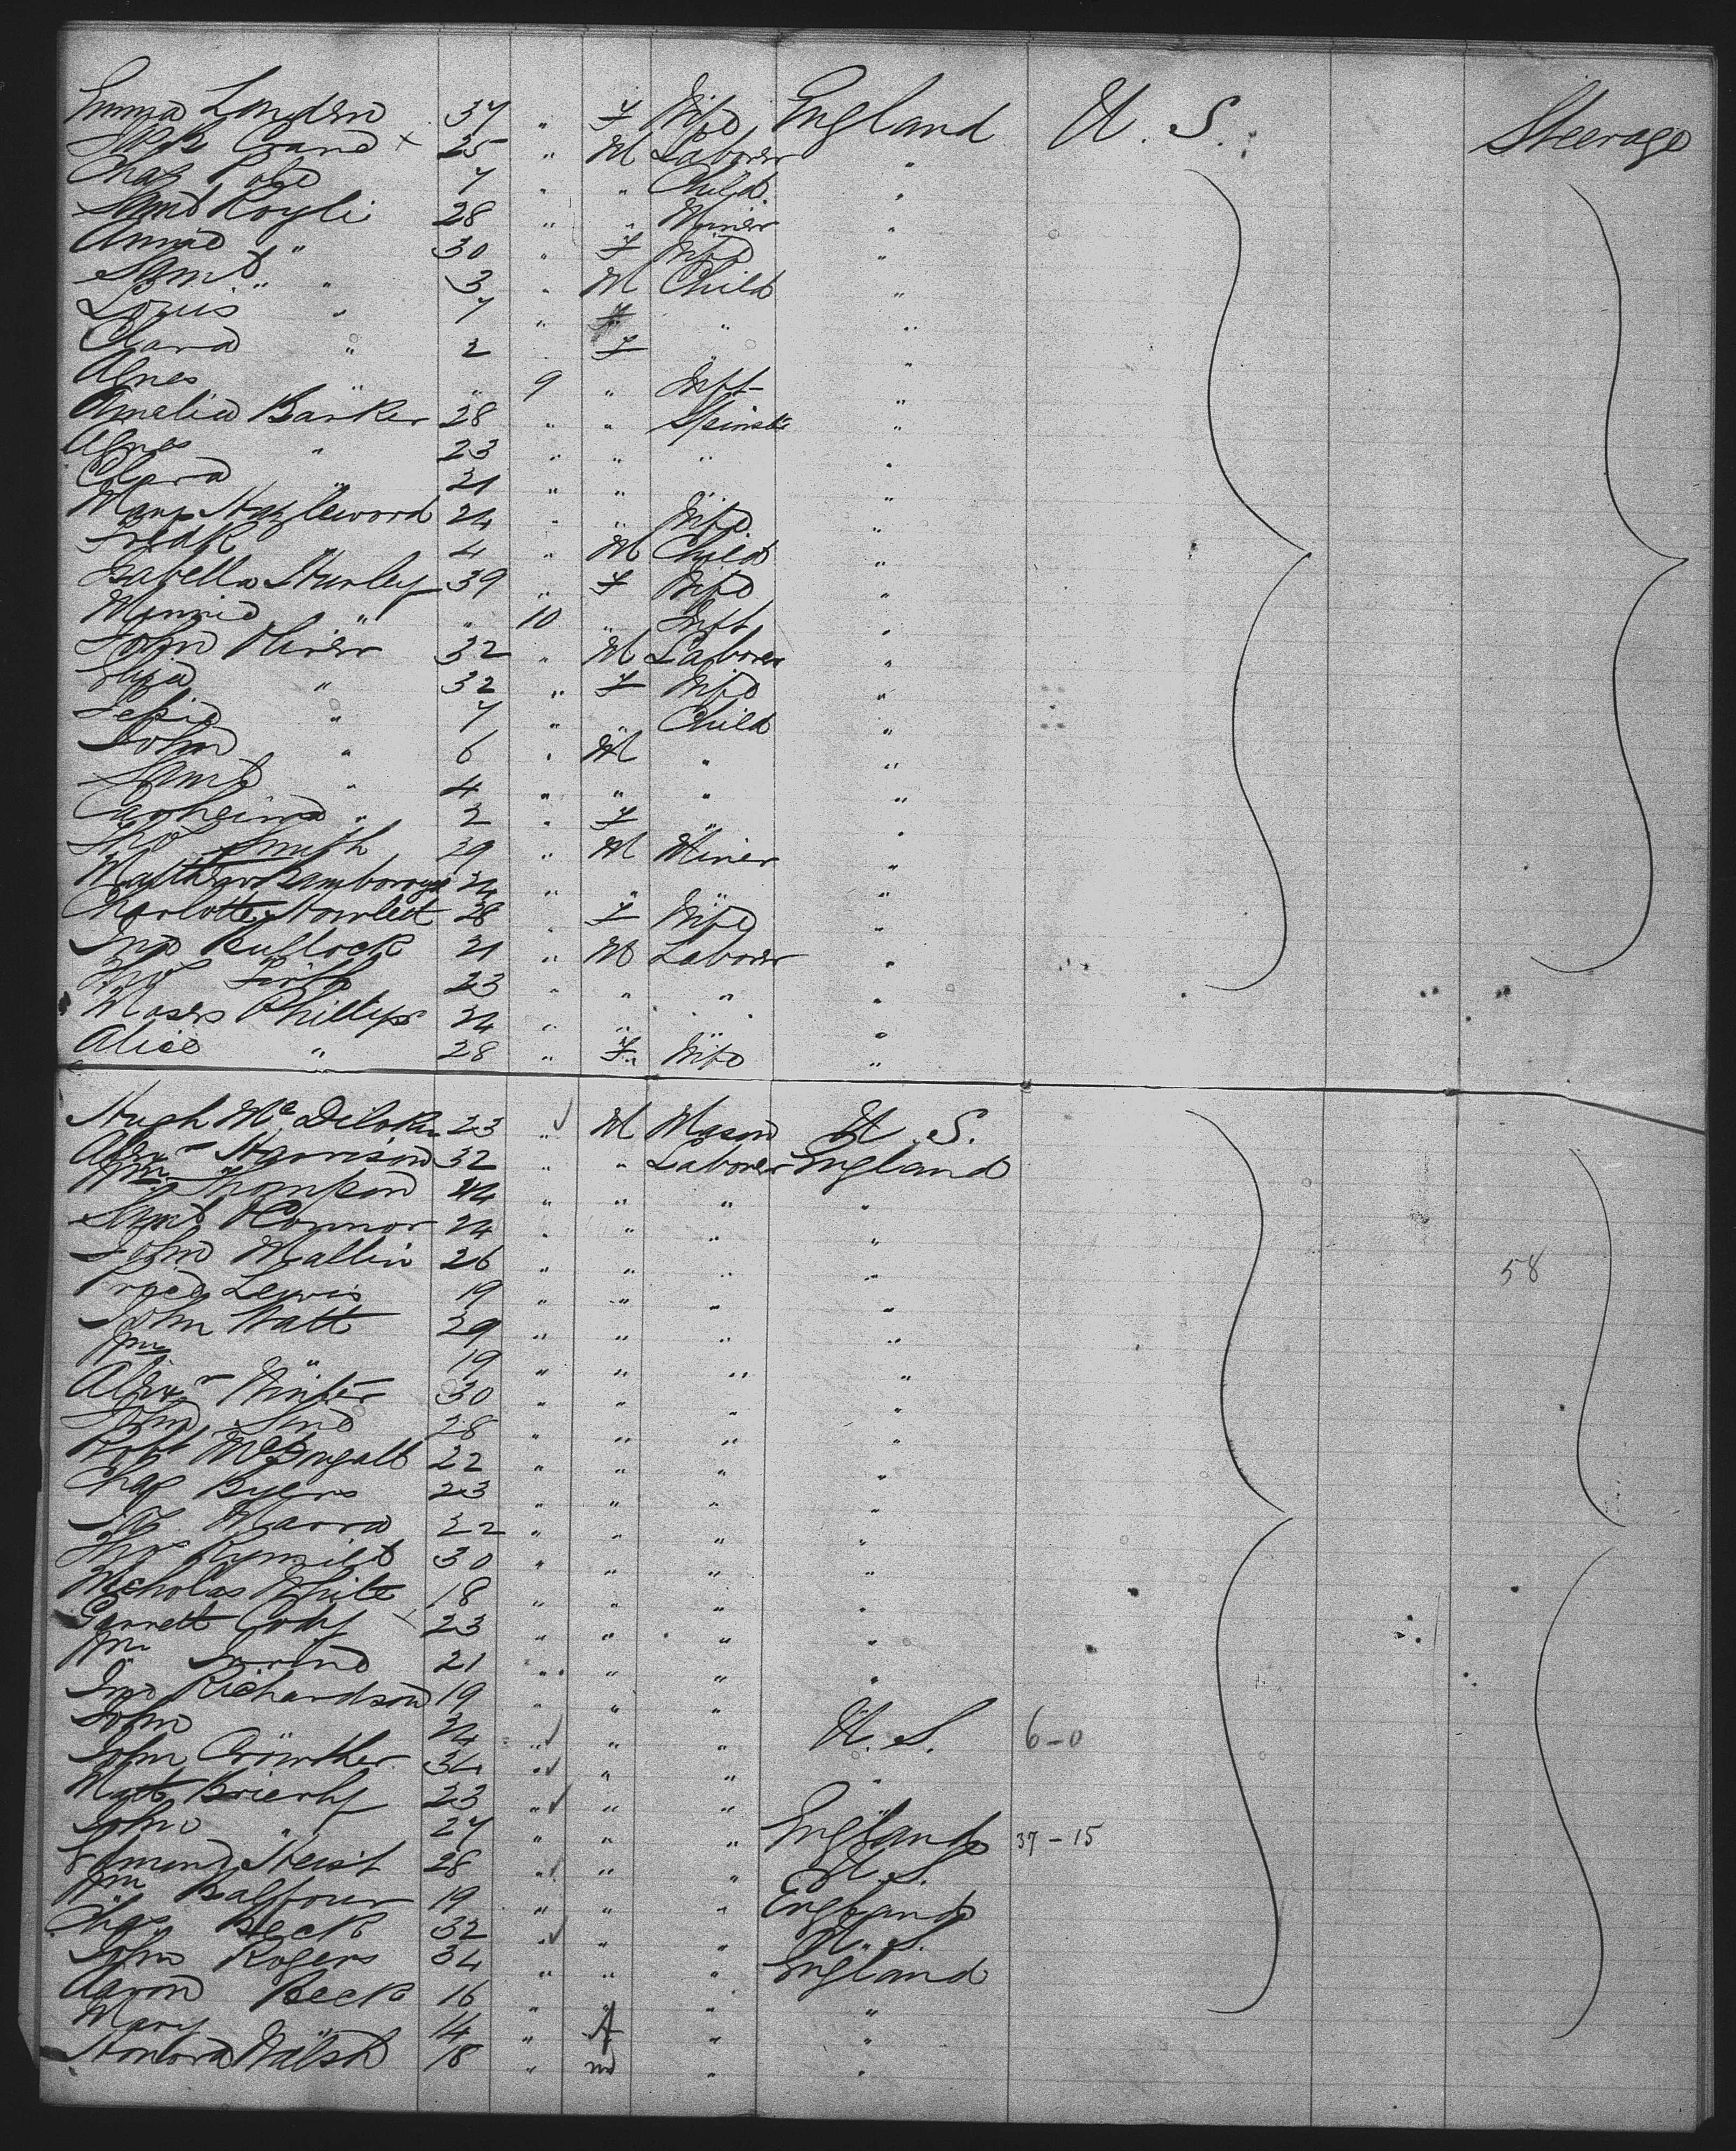 Emma 37 " F Wife England U. S. Steerage
Jack Crane x 25 " M Laborer "
Chas 7 " " Child "
Saml Royle 28 " " Miner "
Annie " 30 " F Wife "
Saml " " 3 " M Child "
Louis " 7 " " "
Clara " 2 F " "
Agnes " " 9 " Inft "
Amelia Barker 28 " " Spinster "
Agnes " 23 " " " "
Clara " 21 " " " "
Mary Hazlewood 24 " " Wife "
Fredk " 4 " M Child "
Isabella Hurley 39 " F Wife "
Minnie " " 10 " Inft "
John Oliver 32 " M Laborer "
Eliza " 32 " F Wife "
" 7 " " Child "
John " 6 " M " "
Saml " 4 " " " "
" 2 " F " "
Thos Smith 29 " M Miner "
Matthew 24 " " " "
Charlotte Howlett 28 " F Wife "
Jno Bullock 21 " M Laborer "
Thos Firth 23 " " " "
Moses Phillips 34 " " " "
Alice " 28 " F Wife "
Hugh Mc 23 " M Mason U. S.
Alexr Harrison 32 " " Laborer England
Wm Thompson 44 " " " "
Saml O'Connor 24 " " " "
John Mallin 26 " " " " 58
Lewis 19 " " " "
John Watt 29 " " " "
Wm " 19 " " " "
Alexr Winter 30 " " " "
John 28 " " " "
Robt McDougall 22 " " " "
Chas Byers 23 " " " "
Jas Marra 22 " " " "
Thos 30 " " " "
Nicholas White 18 " " " "
Garrett Cody x 23 " " " "
Wm 21 " " " "
Jno Richardson 19 " " "
John " 24 " " " U. S. 6-0
John Crowther 34 " " " "
Matt Brierly 23 " " " "
John " 27 " " " England 37-15
Edmund 28 " " " U. S.
Wm Balfour 19 " " " England
Chas Beck 32 " " " U. S.
John Rogers 34 " " " England
Aaron Beck 16 " " " "
Mary " 14 " f " "
Honora Walsh 18 " m " "